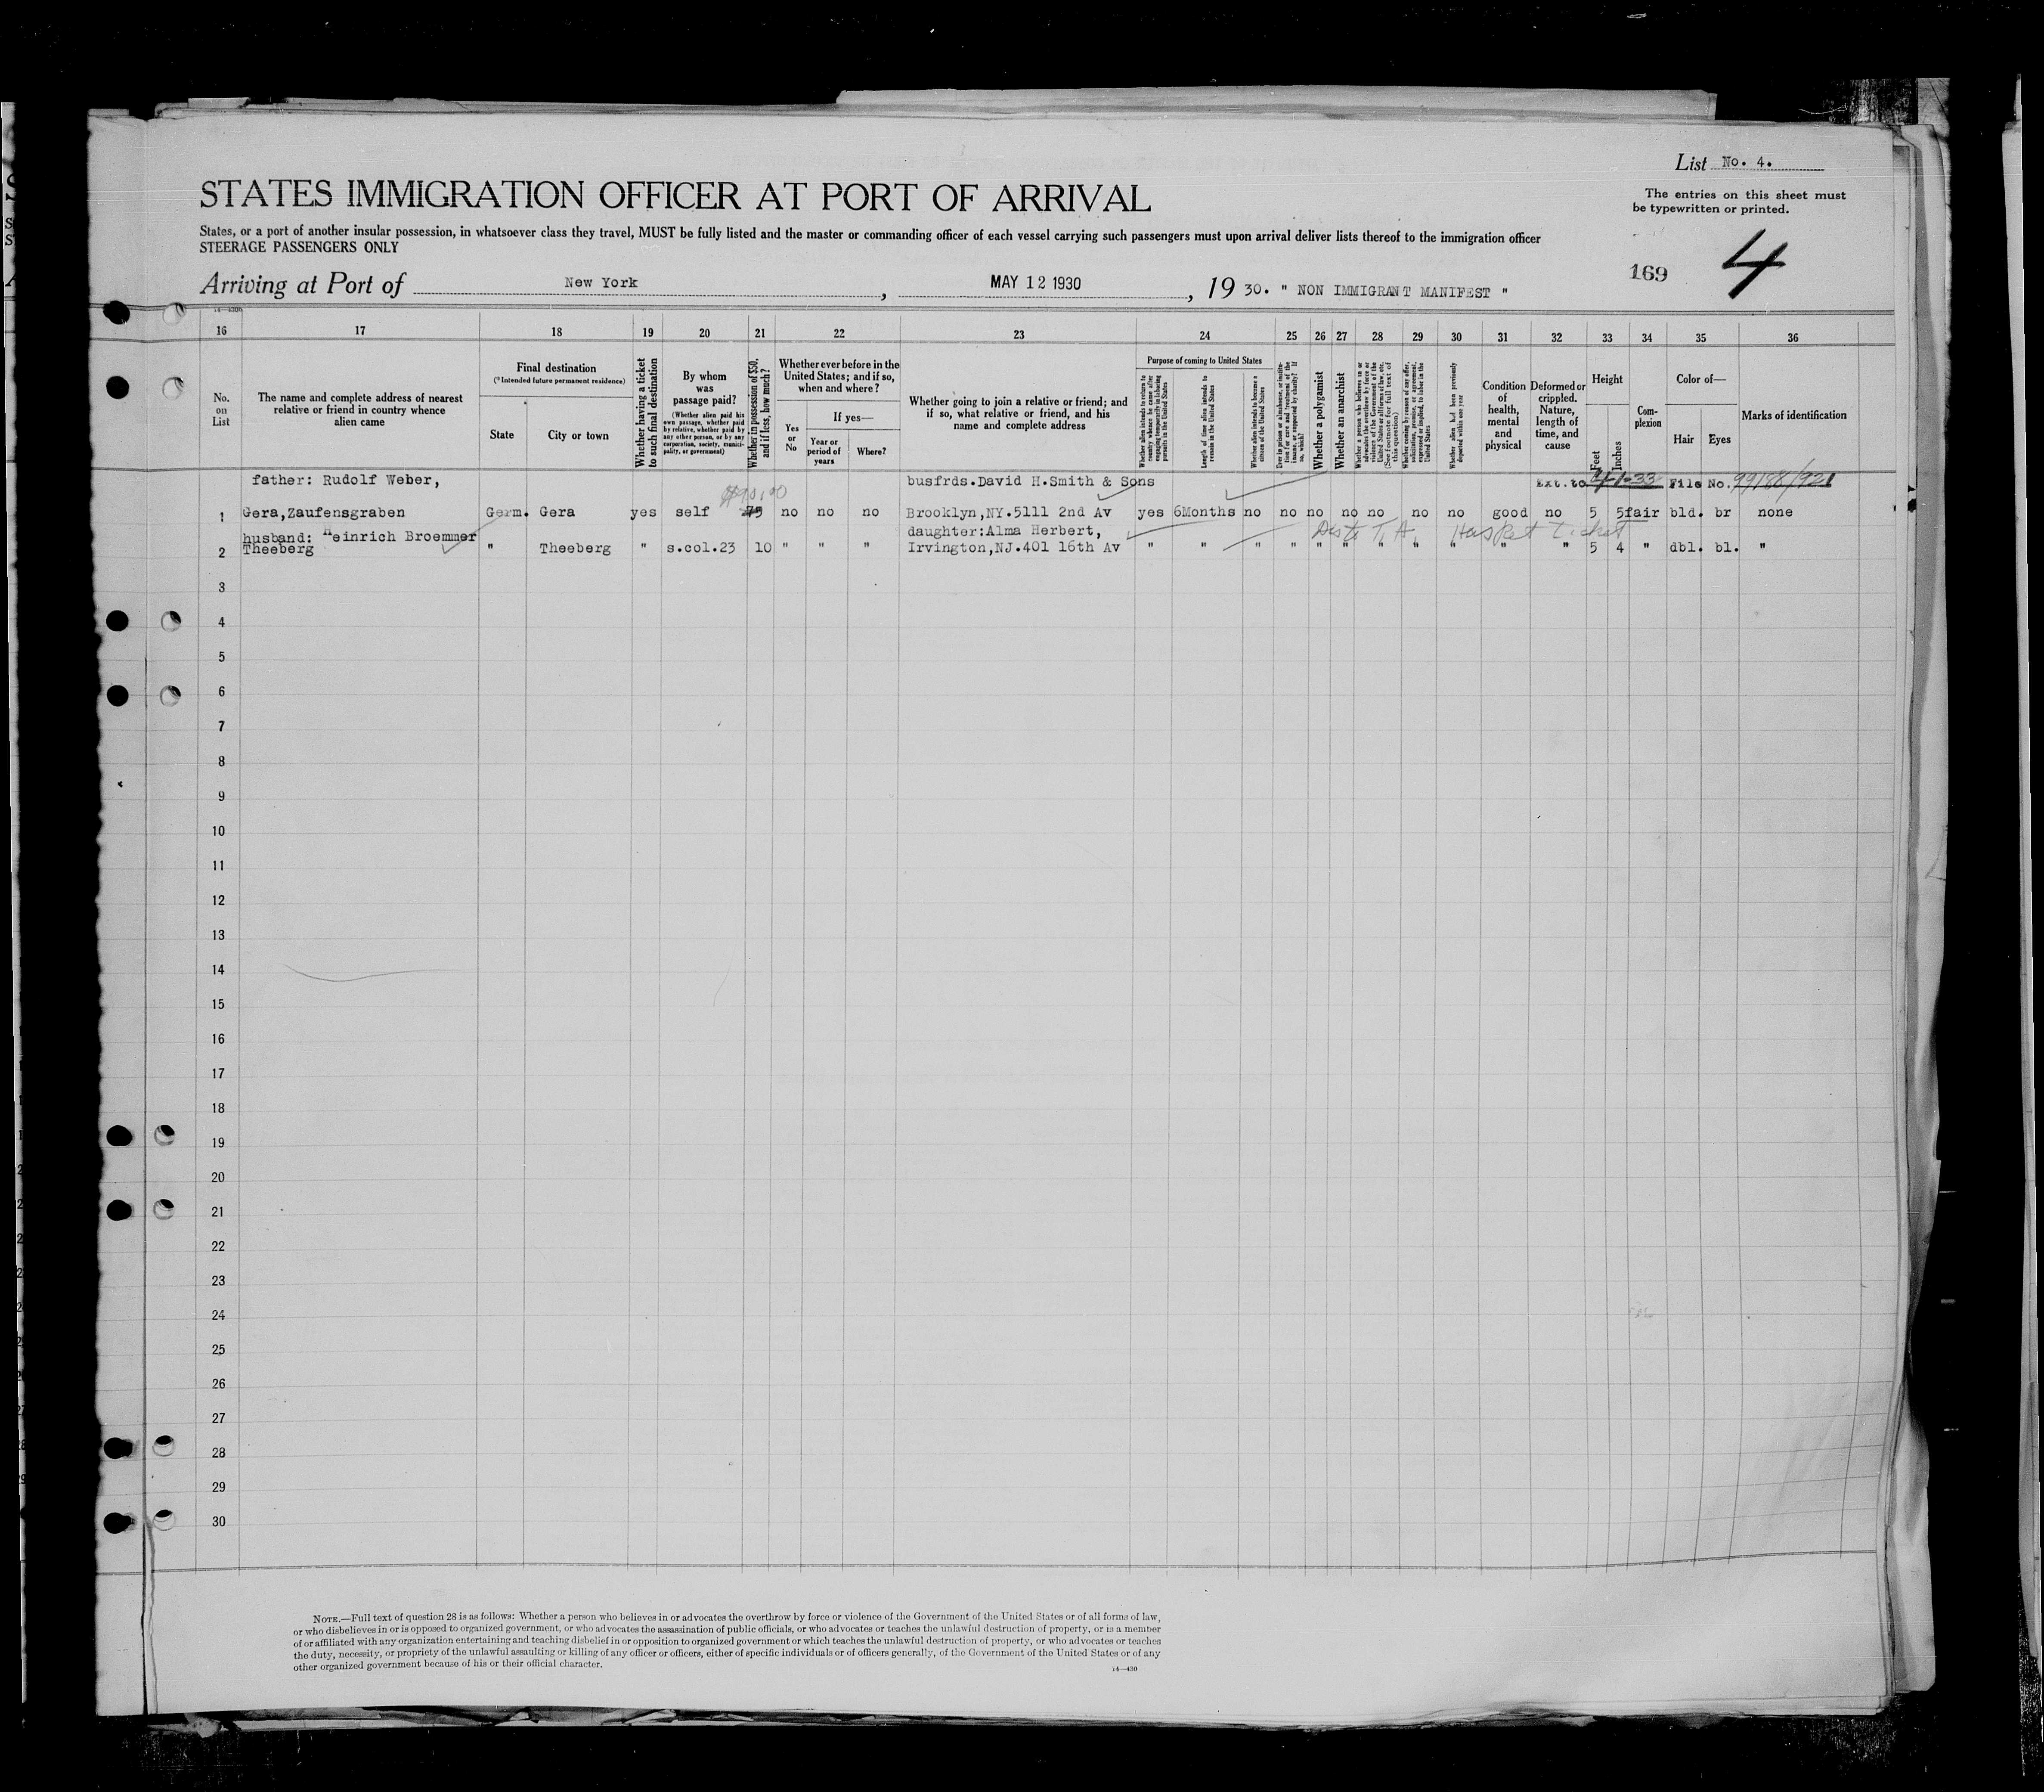 List No. 4.
STATES IMMIGRATION OFFICER AT PORT OF ARRIVAL
The entries on this sheet must
be typewritten or printed.
States, or a port of another insular possession, in whatsoever class they travel, MUST be fully listed and the master or commanding officer of each vessel carrying such passengers must upon arrival deliver lists thereof to the immigration officer
STEERAGE PASSENGERS ONLY
169 4
Arriving at Port of New York, MAY 12 1930, 19 30. " NON IMMIGRANT MANIFEST "
16 17 18 19 20 21 22 23 24 25 26 27 28 29 30 31 32 33 34 35 36
No.
on
List
The name and complete address of nearest
relative or friend in country whence
alien came
Final destination
(*Intended future permanent residence)
State
City or town
Whether having a ticket
to such final destination
By whom
was
passage paid?
(Whether alien paid his
own passage, whether paid
by relative, whether paid by
any other person, or by any
corporation, society, munici-
pality, or government)
Whether in possession of $50,
and if less, how much?
Whether ever before in the
United States; and if so,
when and where?
Yes
or
No
If yes—
Year or
period of
years
Where?
Whether going to join a relative or friend; and
if so, what relative or friend, and his
name and complete address
Purpose of coming to United States
Whether alien intends to return to
country whence he came after
engaging temporarily in laboring
pursuits in the United States
Length of time alien intends to
remain in the United States
Whether alien intends to become a
citizen of the United States
Ever in prison or almshouse, or institu-
tion for care and treatment of the
insane, or supported by charity? If
so, which?
Whether a polygamist
Whether an anarchist
Whether a person who believes in or
advocates the overthrow by force or
violence of the Government of the
United States or all forms of law, etc.
(See footnote for full text of
this question)
Whether coming by reason of any offer,
solicitation, promise, or agreement,
expressed or implied, to labor in the
United States
Whether alien had been previously
deported within one year
Condition
of
health,
mental
and
physical
Deformed or
crippled.
Nature,
length of
time, and
cause
Height
Feet
Inches
Com-
plexion
Color of—
Hair
Eyes
Marks of identification
father: Rudolf Weber, busfrds.David H.Smith & Sons Ext. to 33 File No. 99188/921
1 Gera,Zaufensgraben Germ. Gera yes self 75 no no no Brooklyn,NY.5111 2nd Av yes 6Months no no no no no no no good no 5 5 fair bld. br none
husband: Heinrich Broemmer daughter:Alma Herbert, Has Ret Ticket
2 Theeberg " Theeberg " s.col.23 10 " " " Irvington,NJ.401 16th Av " " " " " " " " " " " 5 4 " dbl. bl. "
3
4
5
6
7
8
9
10
11
12
13
14
15
16
17
18
19
20
21
22
23
24
25
26
27
28
29
30
NOTE.—Full text of question 28 is as follows: Whether a person who believes in or advocates the overthrow by force or violence of the Government of the United States or of all forms of law,
or who disbelieves in or is opposed to organized government, or who advocates the assassination of public officials, or who advocates or teaches the unlawful destruction of property, or is a member
of or affiliated with any organization entertaining and teaching disbelief in or opposition to organized government or which teaches the unlawful destruction of property, or who advocates or teaches
the duty, necessity, or propriety of the unlawful assaulting or killing of any officer or officers, either of specific individuals or of officers generally, of the Government of the United States or of any
other organized government because of his or their official character.
14—430